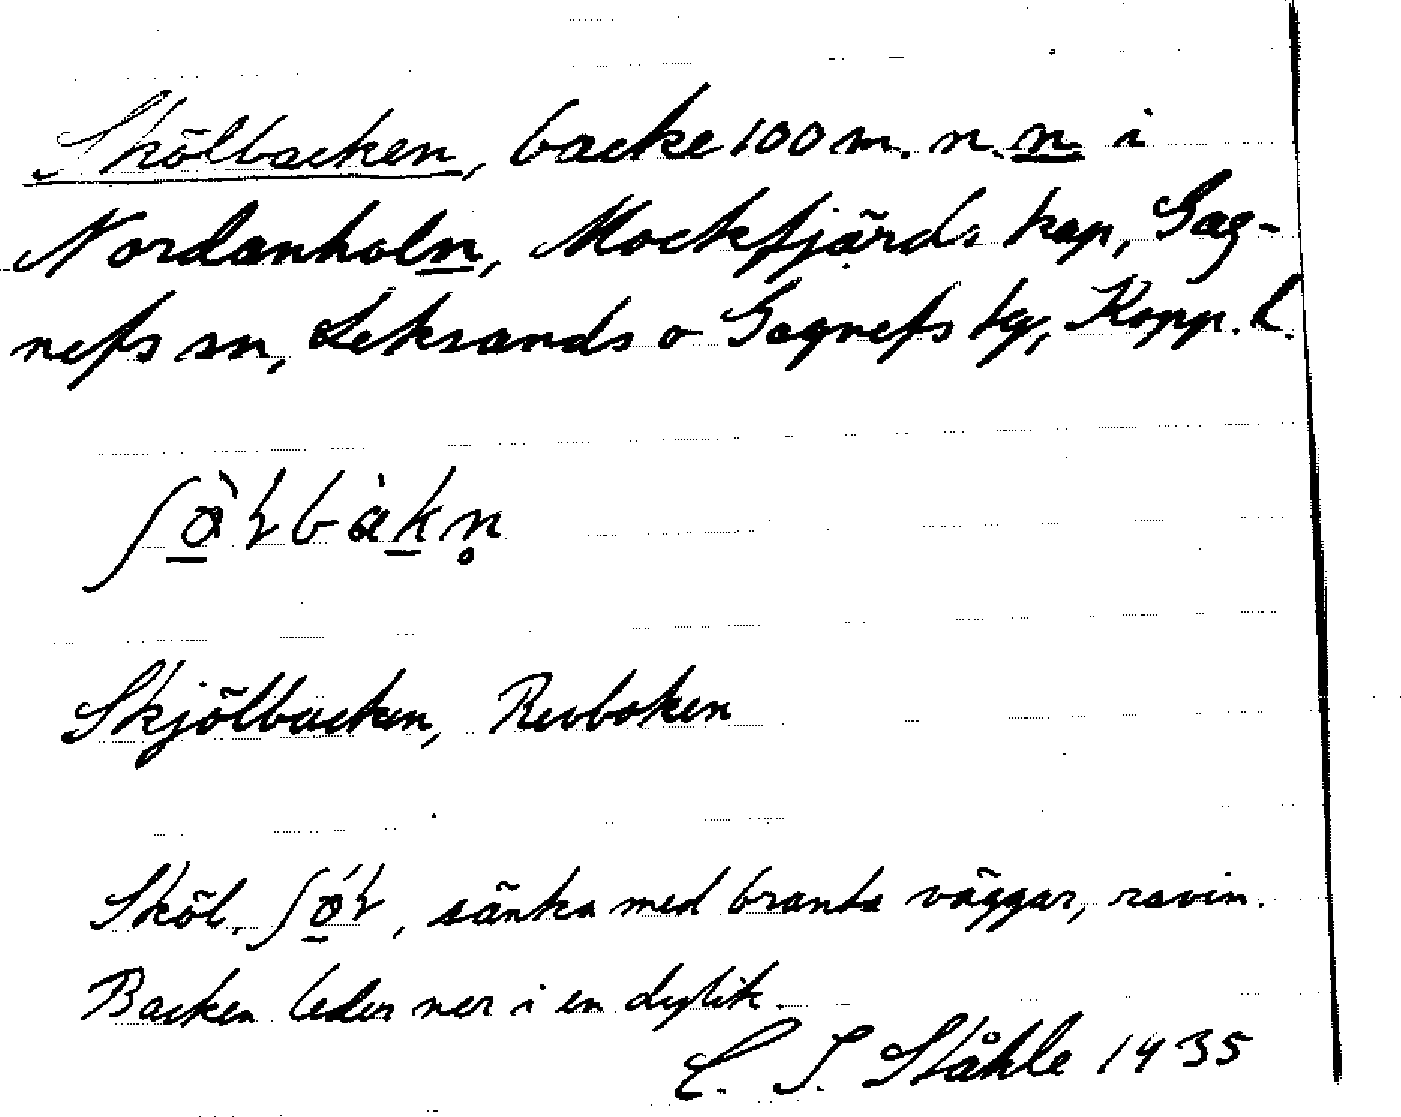 Skölbacken, backe 100 m. n. n. i
Nordanholn, Mockfjärds kap, Gag-
nefs sn, Leksands o Gagnefs tg, Kopp. l.
Skjölbacken, Revboken
Sköl, sänka med branta väggar, ravin.
Backen leder ner i en dylik.
C. I. Ståhle 1935